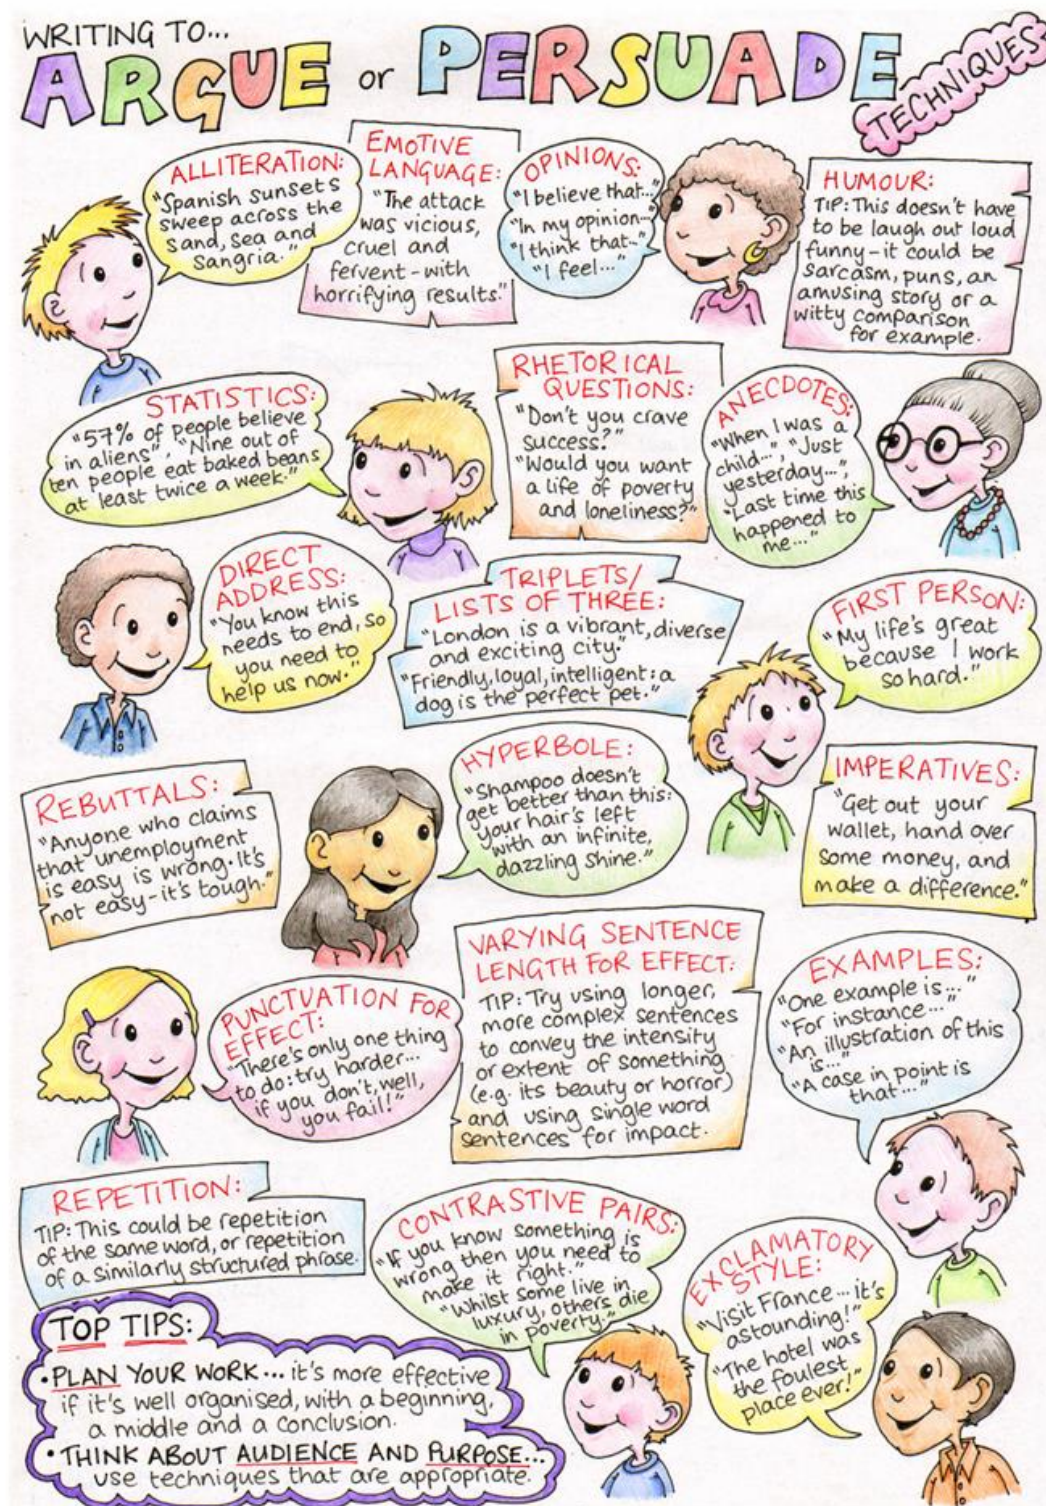 WRITING TO...
ARGUE or PERSUADE
TECHNIQUES
ALLITERATION:
"Spanish sunsets
sweep across the
sand, sea and
sangria."
EMOTIVE
LANGUAGE:
"The attack
was vicious,
cruel and
fervent - with
horrifying results."
OPINIONS:
"I believe that..."
"In my opinion..."
"I think that..."
"I feel..."
HUMOUR:
TIP: This doesn't have
to be laugh out loud
funny - it could be
sarcasm, puns, an
amusing story or a
witty comparison
for example.
STATISTICS:
"57% of people believe
in aliens", "Nine out of
ten people eat baked beans
at least twice a week."
RHETORICAL
QUESTIONS:
"Don't you crave
success?"
"Would you want
a life of poverty
and loneliness?"
ANECDOTES:
"When I was a
child...", "Just
yesterday...",
"Last time this
happened to
me..."
DIRECT
ADDRESS:
"You know this
needs to end, so
you need to
help us now."
TRIPLETS/
LISTS OF THREE:
"London is a vibrant, diverse
and exciting city."
"Friendly, loyal, intelligent: a
dog is the perfect pet."
FIRST PERSON:
"My life's great
because I work
so hard."
REBUTTALS:
"Anyone who claims
that unemployment
is easy is wrong. It's
not easy - it's tough."
HYPERBOLE:
"Shampoo doesn't
get better than this:
your hair's left
with an infinite,
dazzling shine."
IMPERATIVES:
"Get out your
wallet, hand over
some money, and
make a difference."
PUNCTUATION FOR
EFFECT:
"There's only one thing
to do: try harder...
if you don't, well,
you fail!"
VARYING SENTENCE
LENGTH FOR EFFECT:
TIP: Try using longer,
more complex sentences
to convey the intensity
or extent of something
(e.g. its beauty or horror)
and using single word
sentences for impact.
EXAMPLES:
"One example is..."
"For instance..."
"An illustration of this
is..."
"A case in point is
that..."
REPETITION:
TIP: This could be repetition
of the same word, or repetition
of a similarly structured phrase.
CONTRASTIVE PAIRS:
"If you know something is
wrong then you need to
make it right."
"Whilst some live in
luxury, others die
in poverty."
EXCLAMATORY
STYLE:
"Visit France... it's
astounding!"
"The hotel was
the foulest
place ever!"
TOP TIPS:
• PLAN YOUR WORK... it's more effective
if it's well organised, with a beginning,
a middle and a conclusion.
• THINK ABOUT AUDIENCE AND PURPOSE...
use techniques that are appropriate.